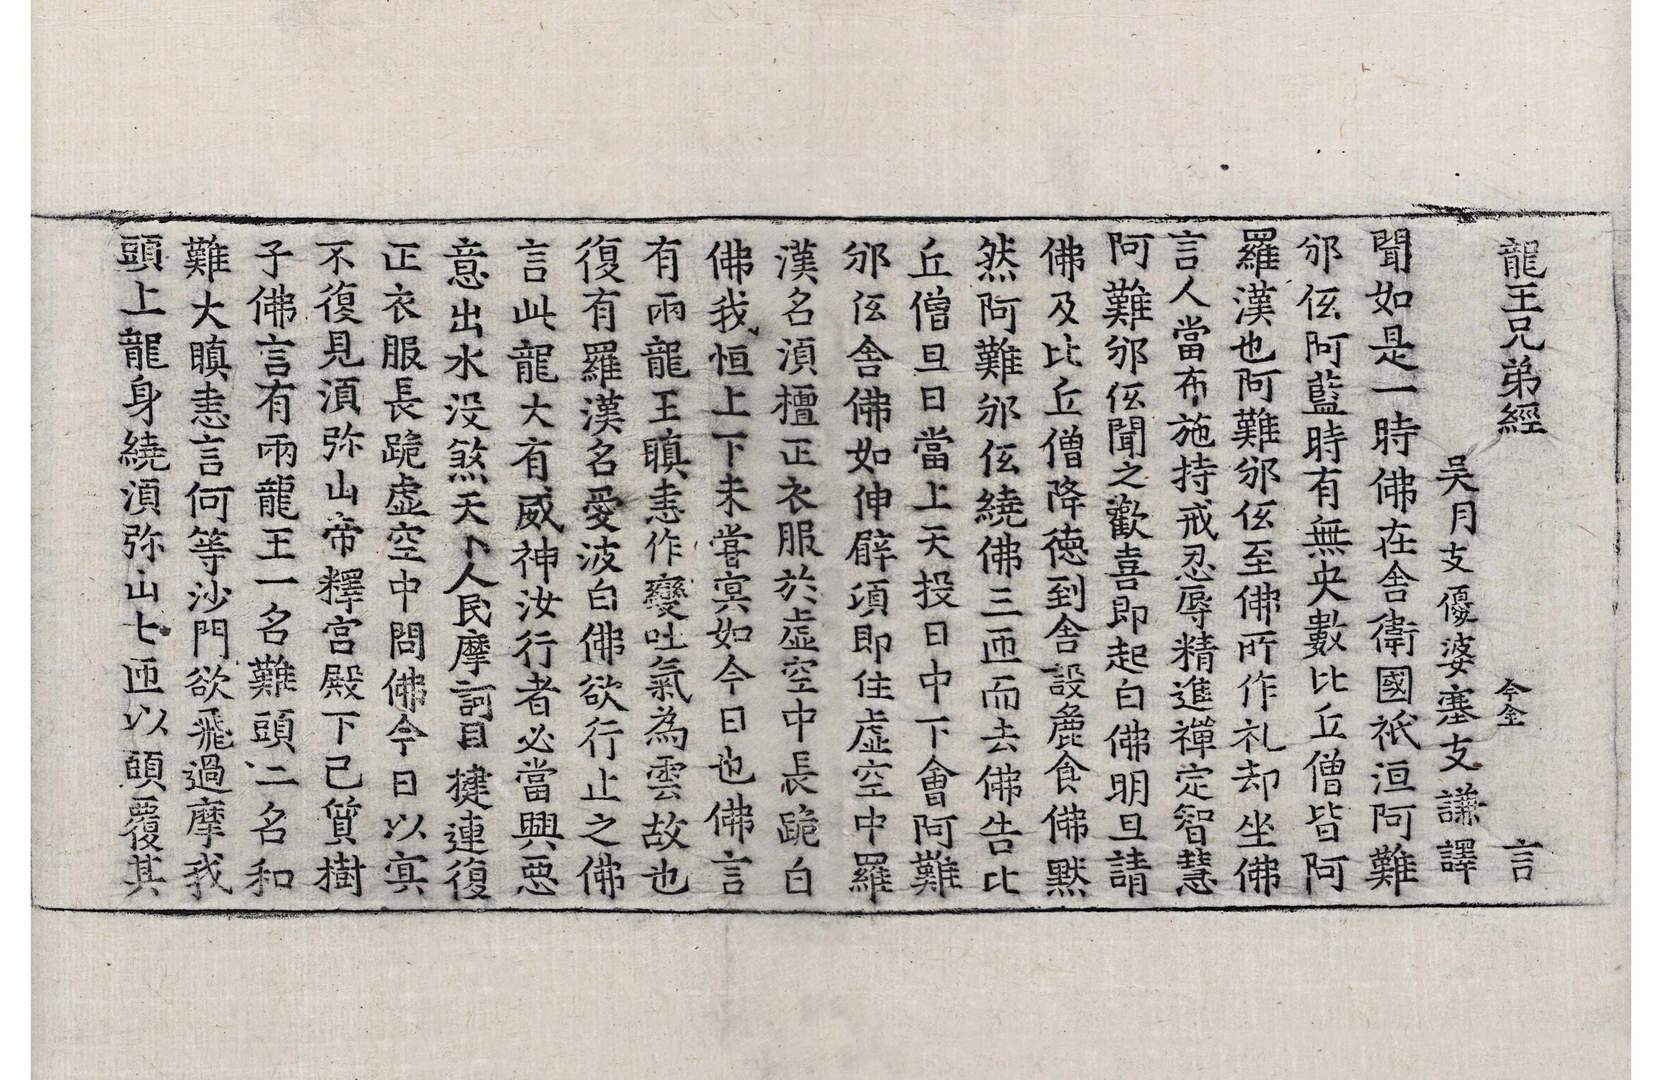 龍王兄弟經 令金 言
吳月支優婆塞支謙譯
聞如是一時佛在舍衛國祇洹阿難
邠伭阿藍時有無央數比丘僧皆阿
羅漢也阿難邠伭至佛所作礼却坐佛
言人當布施持戒忍辱精進禪定智慧
阿難邠伭聞之歡喜即起白佛明旦請
佛及比丘僧降德到舍設麁食佛默
然阿難邠伭繞佛三匝而去佛告比
丘僧旦日當上天投日中下會阿難
邠伭舍佛如伸臂頃即住虛空中羅
漢名湏檀正衣服於虛空中長跪白
佛我恒上下未嘗㝠如今日也佛言
有兩龍王瞋恚作變吐氣為雲故也
復有羅漢名愛波白佛欲行止之佛
言此龍大有威神汝行者必當興惡
意出水没煞天卜人民摩訶目揵連復
正衣服長跪虛空中問佛今日以㝠
不復見湏弥山帝釋宮殿下已質樹
子佛言有兩龍王一名難頭二名和
難大瞋恚言何等沙門欲飛過摩我
頭上龍身繞湏弥山七匝以頭覆其